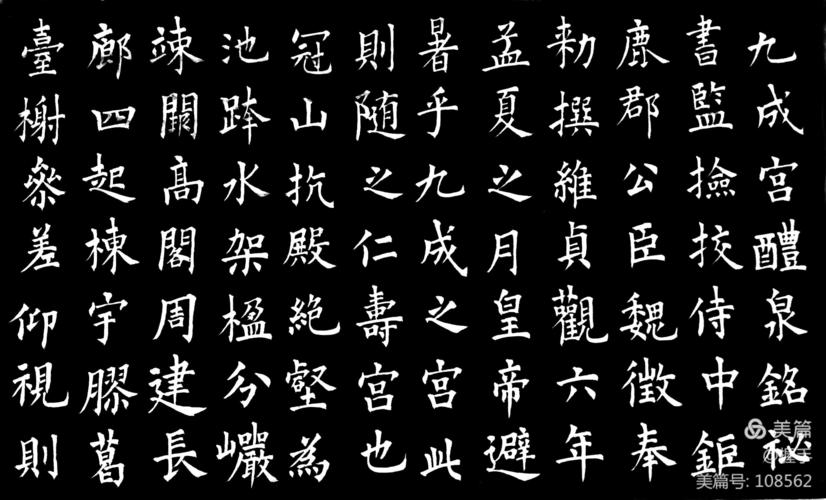 九成宫醴泉銘秘
書監撿挍侍中鉅
鹿郡公臣魏徵奉
勑撰維貞觀六年
孟夏之月皇帝避
暑乎九成之宫此
則随之仁壽宫也
冠山抗殿絶壑為
池跨水架楹分巖
竦闕高閣周建長
廊四起棟宇膠葛
臺榭參差仰視則
美篇
美篇号: 108562